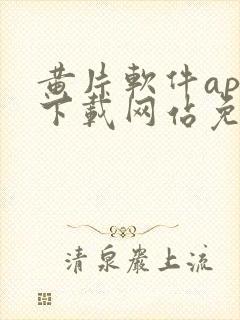 黄片軟件ap
下載网佔免
清泉巖上流